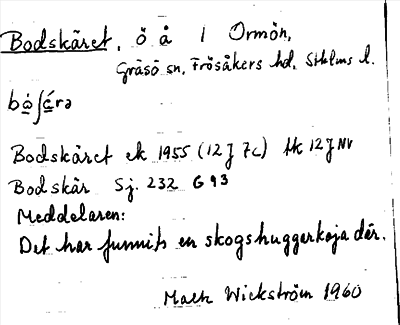 Bodskäret, ö å / Ormön,
Gräsö sn, Frösåkers hd, Sthlms l.
Bodskäret ek 1955 (12J 7c) tk 12J NV
Bodskär Sj. 232 G 93
Meddelaren:
Det har funnits en skogshuggarkoja där.
Wickström 1960